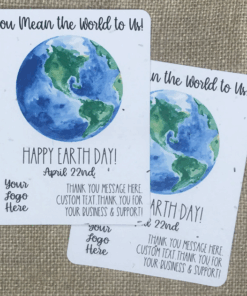 ou Mean the World to Us!
HAPPY EARTH DAY!
April 22nd
Your
Logo
Here
THANK YOU MESSAGE HERE.
CUSTOM TEXT. THANK YOU FOR
YOUR BUSINESS & SUPPORT!
the World to Us!
EARTH DAY!
22nd
Your
Logo
Here
THANK YOU MESSAGE HERE.
CUSTOM TEXT. THANK YOU FOR
YOUR BUSINESS & SUPPORT!